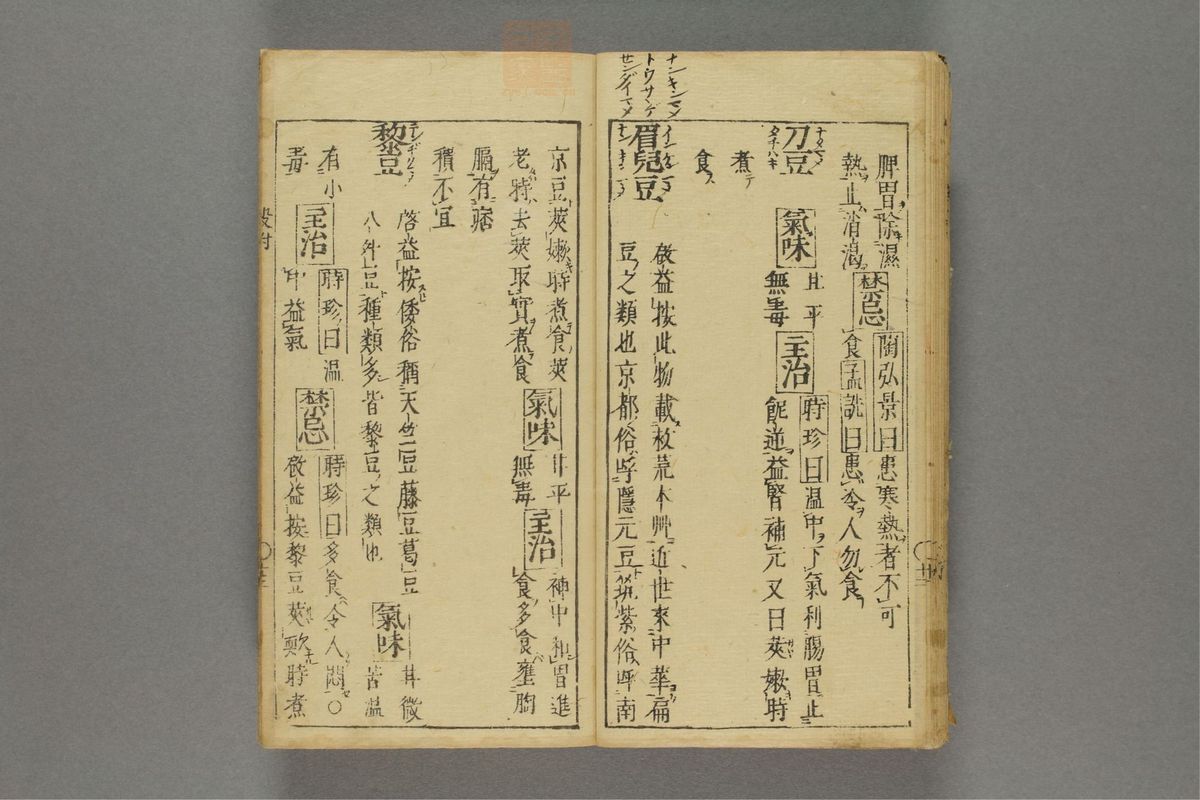 脾胃除濕
熱止消渴
禁忌
陶弘景曰患寒熱者不可
食孟詵曰患冷人勿食
刀豆
ナタマメ
タチハキ
氣味
甘平
無毒
主治
時珍曰温中下氣利腸胃止
呃逆益腎補元又曰莢嫩時
煮
食
ナンキンマメ
トウサヽゲ
センダイマメ
眉兒豆
啟益按此物載救荒本艸近世來中華扁
豆之類也京都俗呼隱元豆筑紫俗呼南
京豆莢嫩時煮食莢
老時去莢取實煮食
氣味
甘平
無毒
主治
補中和胃進
食多食壅胸
膈有痞
積不宜
黎豆
啓益按倭俗稱天竺豆藤豆葛豆
八舛豆種類多皆黎豆之類也
氣味
甘微
苦温
有小
毒
主治
時珍曰温
中益氣
禁忌
時珍曰多食令人悶○
啟益按黎豆莢軟時煮